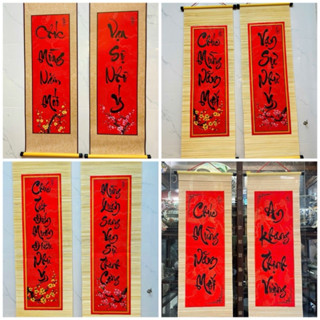 Chúc
Mừng
Năm
Mới
Vạn
Sự
Như
Ý
Chúc
Mừng
Năm
Mới
Vạn
Sự
Như
Ý
Chúc
Tết
Đến
Muôn
Điều
Như
Ý
Mừng
Xuân
Sang
Vạn
Sự
Thành
Công
Chúc
Mừng
Năm
Mới
An
Khang
Thịnh
Vượng